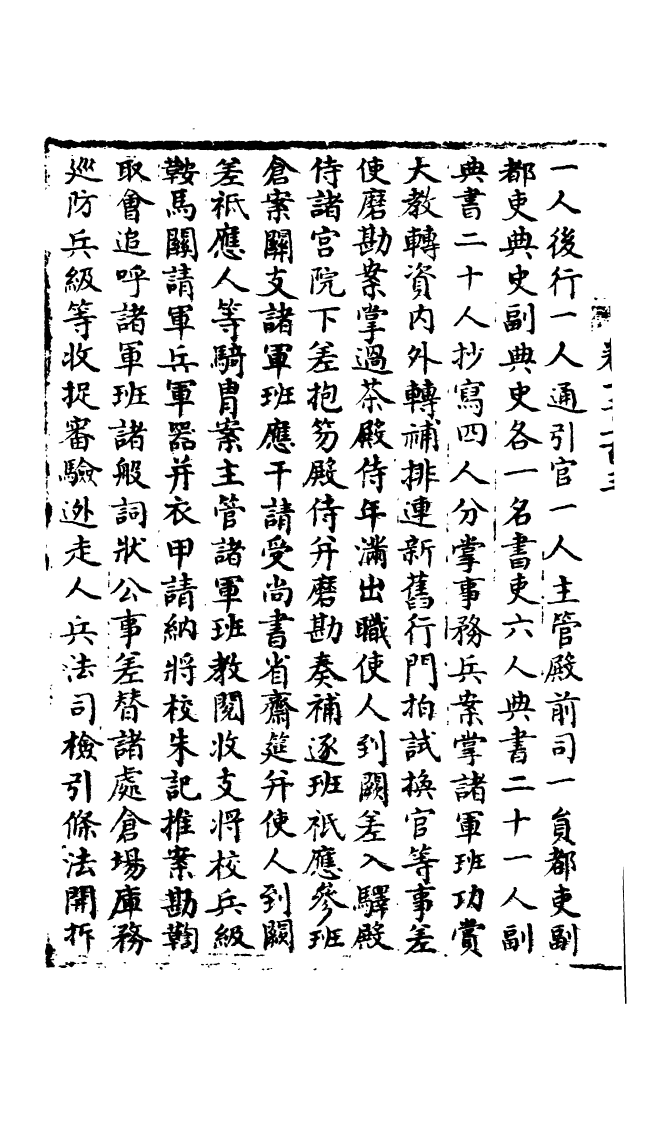 一人後行一人通引官一人主管殿前司一負都吏副
都吏典史副典史各一名書吏六人典書二十一人副
典書二十人抄寫四人分掌事務兵案掌諸軍班功賞
大教轉資内外轉補排連新舊行門拍試換官等事差
使磨勘案掌過茶殿侍年滿出職使人到闕差入驛殿
侍諸宫院下差抱笏殿侍并磨勘奏補逐班祇應參班
倉案關支諸軍班應干請受尚書省齋筵并使人到闕
差祇應人等騎胄案主管諸軍班教閲收支將校兵級
鞍馬關請軍兵軍器并衣甲請納將校朱記推案勘鞫
取會追呼諸軍班諸般詞狀公事差替諸處倉場庫務
巡防兵級等收捉審驗迯走人兵法司檢引條法開拆